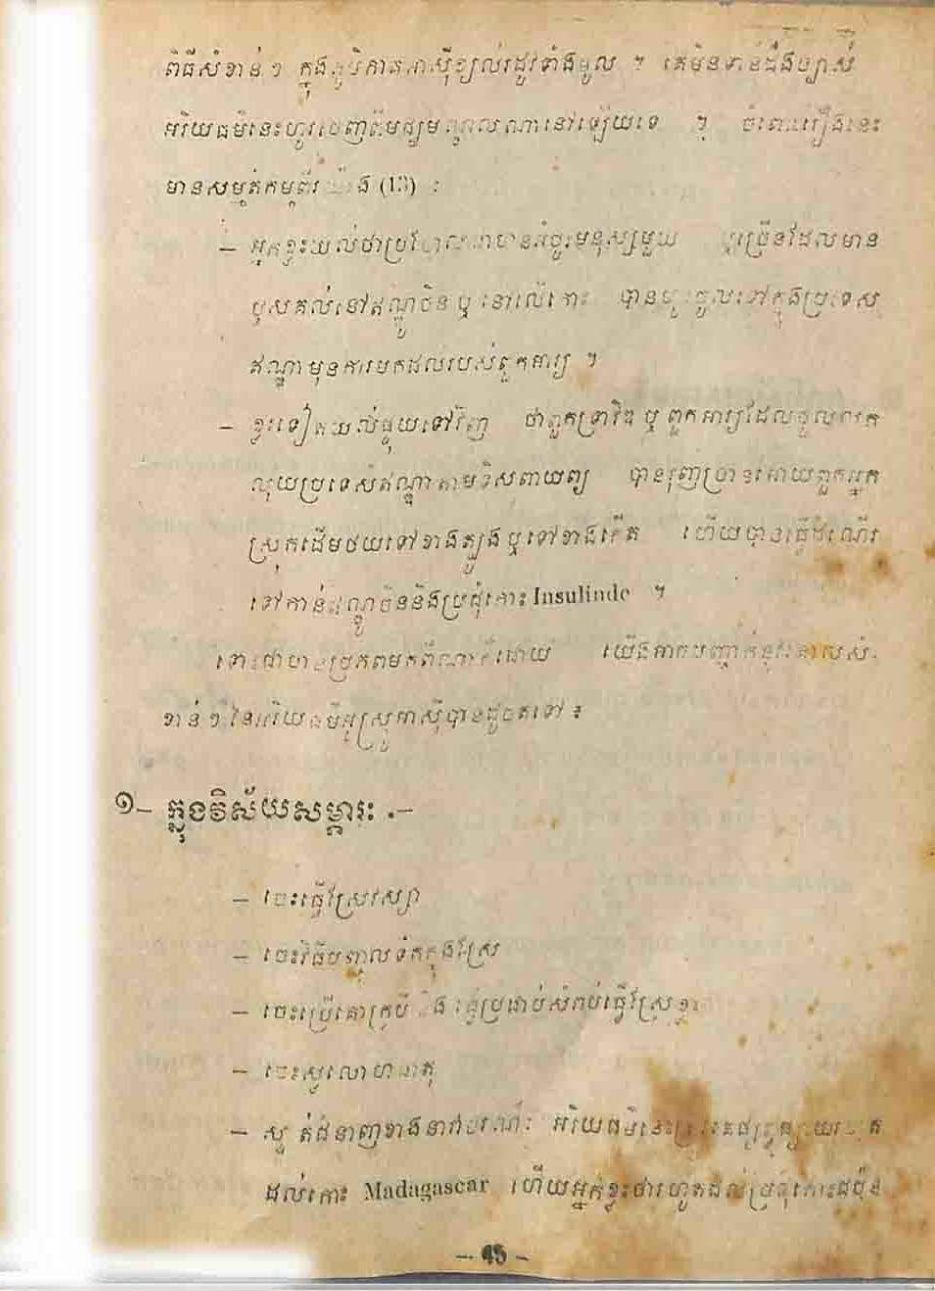 ពិធីសំខាន់ៗ ក្នុងភូមិភាគអាស៊ីខ្យល់រដូវទាំងមូល ។ គេមិនទាន់ដឹងច្បាស់
អរិយធម៌នេះហូរចេញពីមជ្ឈមណ្ឌលណានៅឡើយទេ ។ ចំពោះរឿងនេះ
មានសម្មតិកម្មពីរ យ៉ាង (13) :
– អ្នកខ្លះយល់ថាប្រហែលជាមានអំបូរមនុស្សមួយ ឬច្រើនដែលមាន
ឫសគល់នៅឥណ្ឌូចិន ឬ នៅលើកោះ បានហូរចូលទៅក្នុងប្រទេស
ឥណ្ឌា មុនការមកដល់របស់ពួកអារ្យ ។
– ខ្លះទៀតយល់ផ្ទុយទៅវិញ ថាពួកទ្រាវិឌ ឬ ពួកអារ្យដែលចូលលុក
លុយប្រទេសឥណ្ឌាតាមទិសពាយព្យ បានរុញច្រានអោយពួកអ្នក
ស្រុកដើមថយទៅខាងត្បូងឬទៅខាងកើត ហើយបានធ្វើដំណើរ
ទៅកាន់ឥណ្ឌូចិននិងប្រជុំកោះ Insulinde ។
ទោះជាមានប្រភពមកពីណាក៏ដោយ យើងអាចបញ្ជាក់នូវ
ខាន់ៗ នៃអរិយធម៌អូស្ត្រូអាស៊ីបានដូចតទៅ ៖
១– ក្នុងវិស័យសម្ភារៈ .–
– ចេះធ្វើស្រែវស្សា
– ចេះវិធីបញ្ចូលទឹកក្នុងស្រែ
– ចេះប្រើគោក្របី និង ធ្វើប្រដាប់សំរាប់ធ្វើស្រែខ្លះ
– ចេះស្លលោហធាតុ
– ស្ទាត់ជំនាញខាងនាវាចរណ៍ អរិយធម៌នេះត្រូវគេផ្សព្វផ្សាយរហូត
ដល់កោះ Madagascar ហើយអ្នកខ្លះថារហូតដល់ប្រជុំកោះជប៉ុន
– 45 –